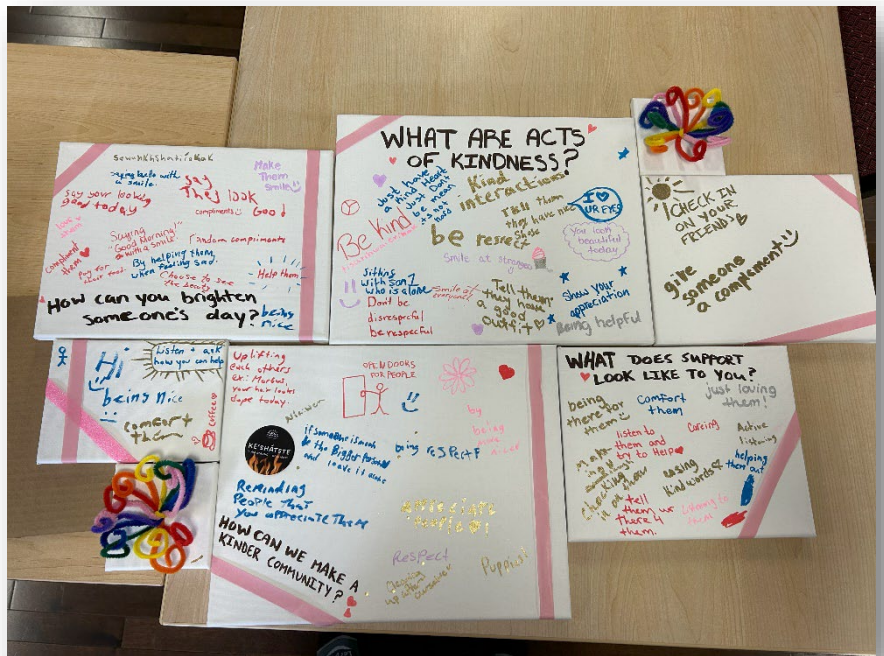 Saying hello with
a smile.
Make
Them
Smile
say your looking
good today
say
They look
Good!
compliments
love
them
Saying
"Good Morning!"
with a smile
Random compliments
compliment
them
Pay for
their food.
By helping them
when feeling sad.
Choose to see
the beauty
Help them
How can you brighten
someone's day?
being
nice
WHAT ARE ACTS
OF KINDNESS?
Just have
a kind heart
Just Don't
be mean
is not
hard
Kind
interactions
Be Kind
be respect
Tell them
they have nice
shoes
I ♡
UR EYES
You look
beautiful
today
Smile at strangers
Sitting
with son1
who is alone
Smile at
everyone!
Don't be
disrespecful
be respecful
Tell them
they have
a good
outfit
Show your
appreciation
Being helpful
CHECK IN
ON YOUR
FRIENDS
give
someone
a complement
Hi
Listen + ask
how you can help
being nice
comfort
them
coffee
Uplifting
each others
ex: Marcus,
your hair looks
dope today.
OPEN DOORS
FOR PEOPLE
KE'SHÁTSTE
if someone is mean
be the bigger person
and leave it alone
being respectf
by
being
more
nicer
Reminding
People That
you appreciate Them
appreciate
HOW CAN WE MAKE A
KINDER COMMUNITY?
Respect
Cleaning
up after
ourselves
Puppies!
WHAT DOES SUPPORT
LOOK LIKE TO YOU?
being
there for
them
Comfort
them
just loving
them!
listen to
them and
try to Help
Caring
Active
listening
helping
them out
Checking
in
using
kind words
tell
them ur
there 4
them.
Listening to
them